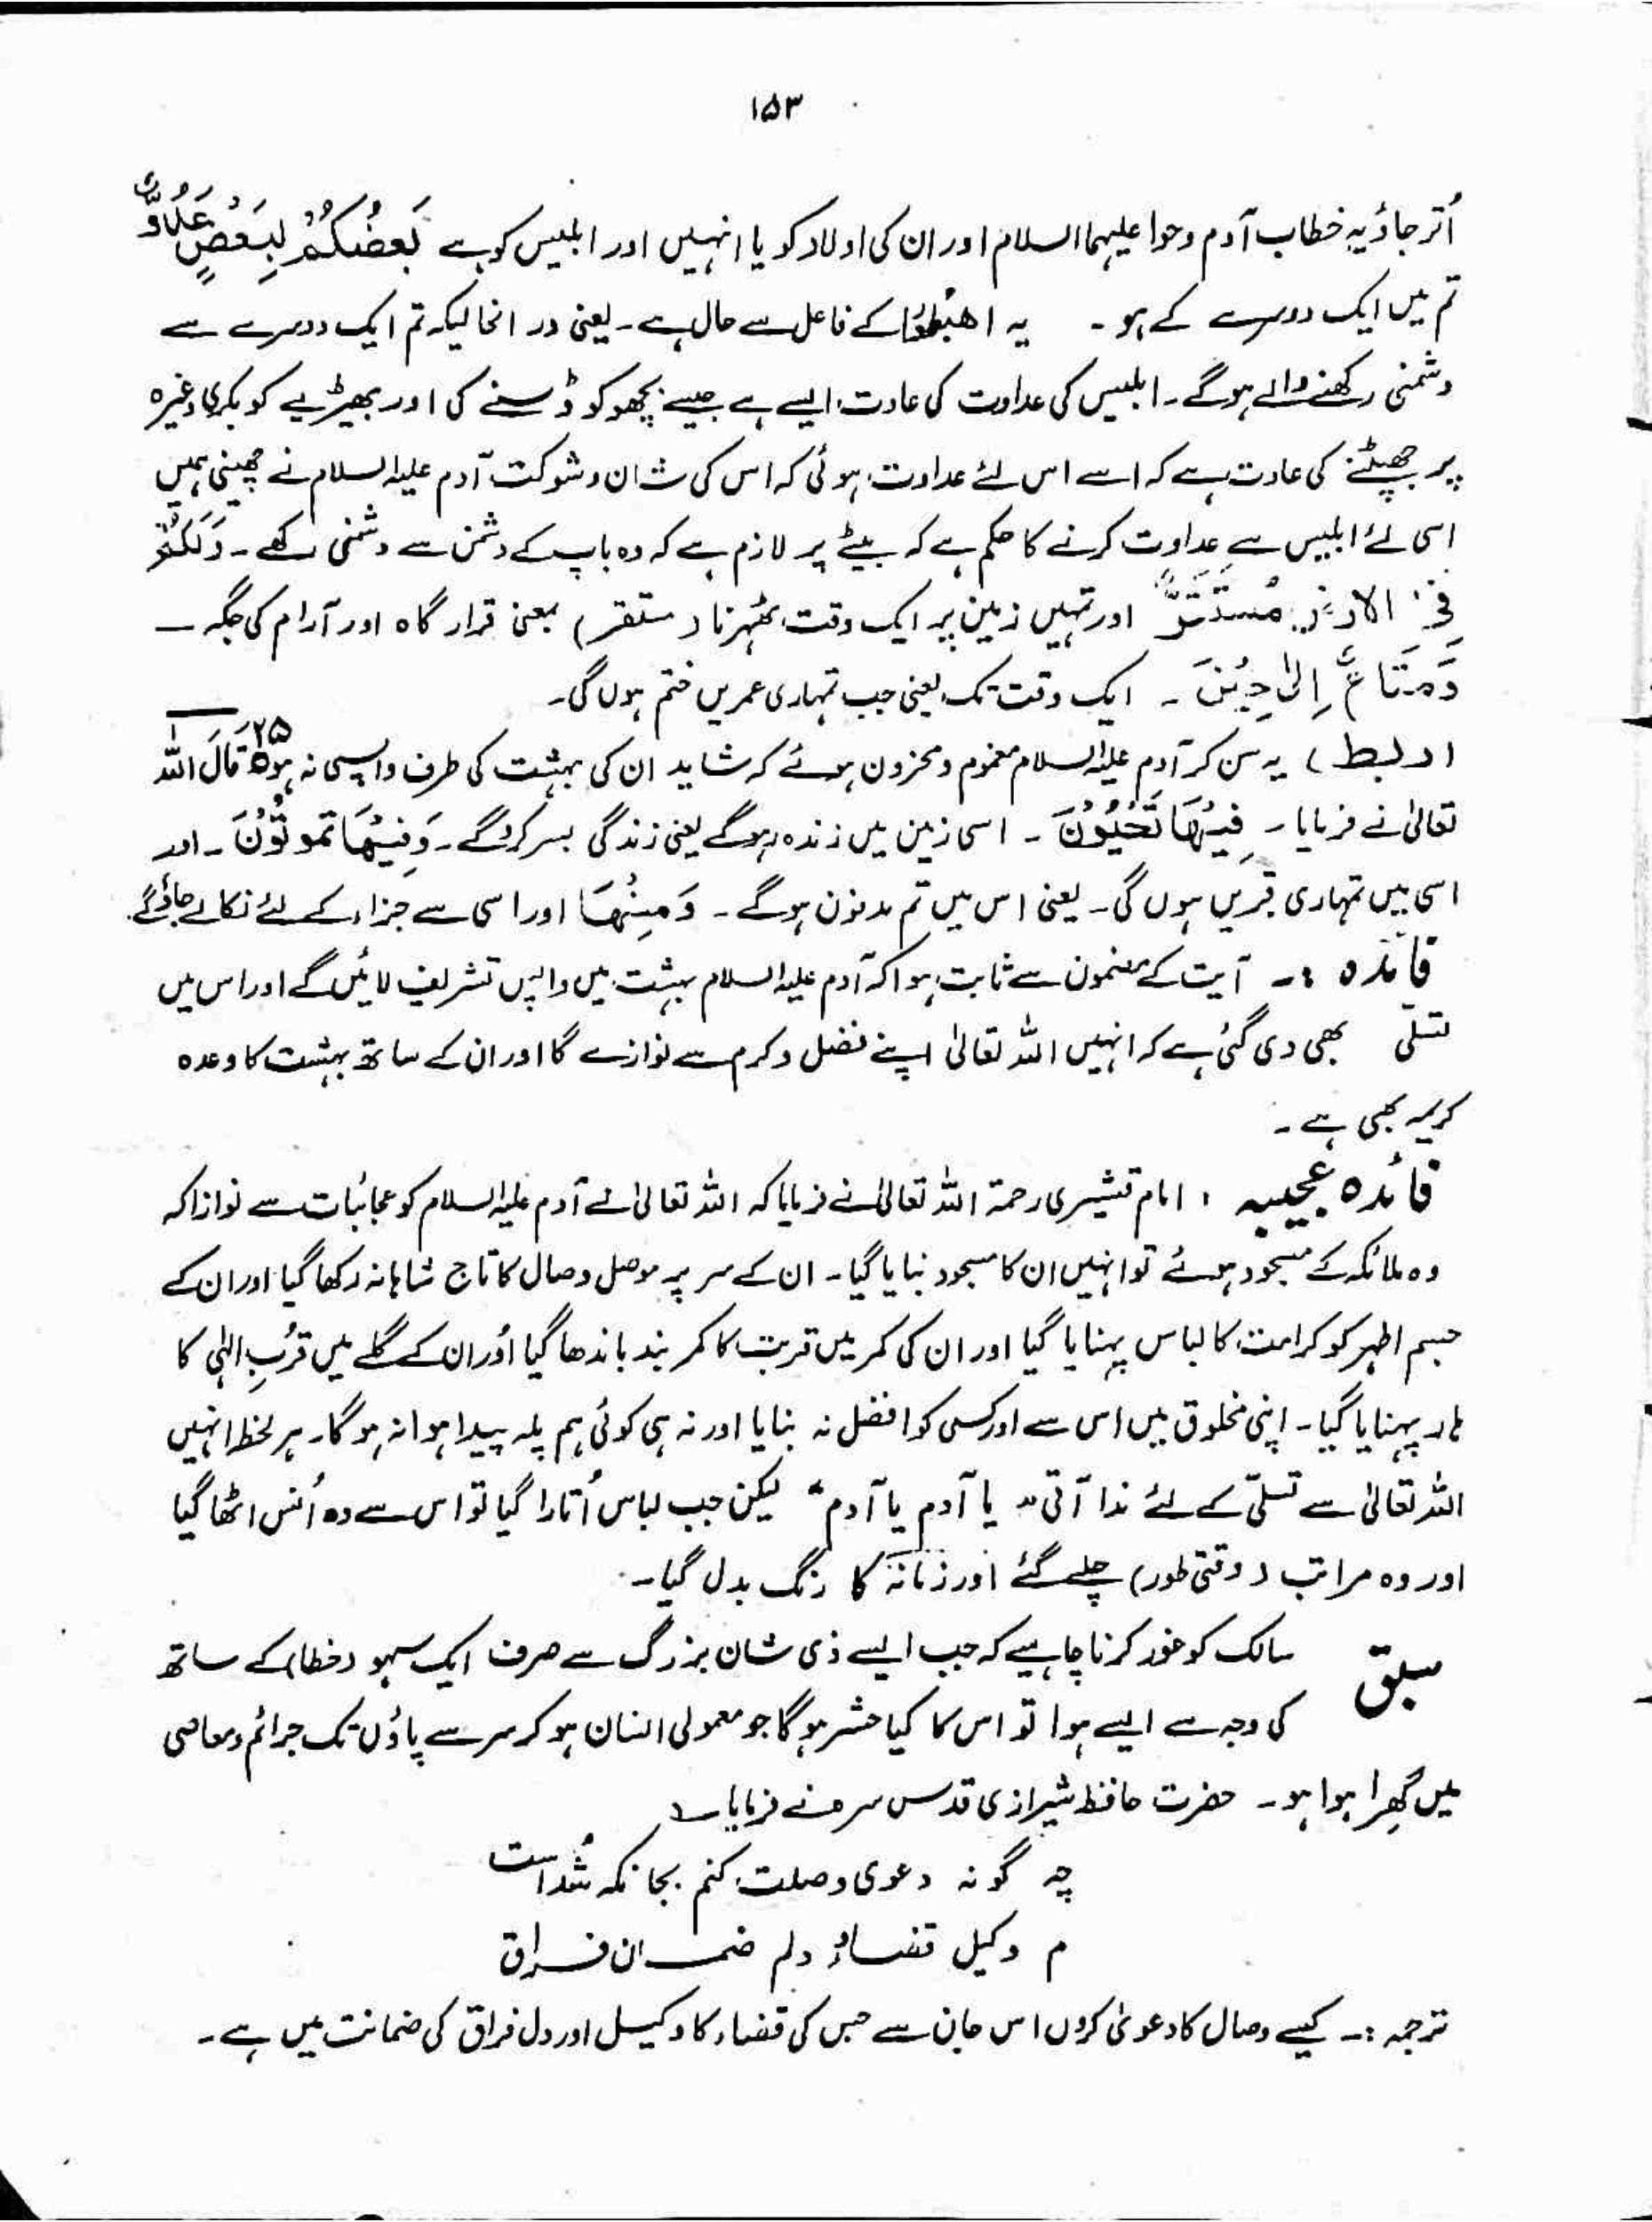 ۱۵۳
اُتر جاؤ یہ خطاب آدم و حوا علیہما السلام اور ان کی اولاد کو یا انہیں اور ابلیس کو ہے بَعضُکُمْ لِبَعْضٍ عَدُوٌّ
تم میں ایک دوسرے کے ہو ۔ یہ اھبُطُوا کے فاعل سے حال ہے ۔ یعنی در انحالیکہ تم ایک دوسرے سے
دشمنی رکھنے والے ہوگے ۔ ابلیس کی عداوت کی عادت ایسے ہے جیسے بچھو کو ڈسنے کی اور بھیڑیے کو بکری وغیرہ
پر جھپٹنے کی عادت ہے کہ اسے اس لئے عداوت ہوئی کہ اس کی شان و شوکت آدم علیہ السلام نے چھینی ہمیں
اسی لئے ابلیس سے عداوت کرنے کا حکم ہے کہ بیٹے پر لازم ہے کہ وہ باپ کے دشمن سے دشمنی رکھے ۔ وَلَکُمْ
فِی الارْضِ مُسْتَقَرٌّ اور تمہیں زمین پر ایک وقت ٹھہرنا ( مستقر ) بمعنی قرار گاہ اور آرام کی جگہ ۔
وَمَتَاعٌ اِلیٰ حِیْنَ ۔ ایک وقت تک یعنی جب تمہاری عمریں ختم ہوں گی ۔
( ربط ) یہ سن کر آدم علیہ السلام مغموم و محزون ہوئے کہ شاید ان کی بہشت کی طرف واپسی نہ ہو ۲۵ قَالَ اللہ
تعالیٰ نے فرمایا ۔ فِیْہَا تَحْیَوْنَ ۔ اسی زمین میں زندہ رہوگے یعنی زندگی بسر کروگے ۔ وَفِیْہَا تَموتُوْنَ ۔ اور
اسی میں تمہاری قبریں ہوں گی ۔ یعنی اس میں تم مدفون ہوگے ۔ وَمِنْہَا اور اسی سے جزاء کے لئے نکالے جاؤگے ۔
فائدہ :۔ آیت کے مضمون سے ثابت ہوا کہ آدم علیہ السلام بہشت میں واپس تشریف لائیں گے اور اس میں
تسلّی بھی دی گئی ہے کہ انہیں اللہ تعالیٰ اپنے فضل و کرم سے نوازے گا اور ان کے ساتھ بہشت کا وعدہ
کریمہ بھی ہے ۔
فائدہ عجیبہ : امام قشیری رحمۃ اللہ تعالیٰ نے فرمایا کہ اللہ تعالیٰ نے آدم علیہ السلام کو عجائبات سے نوازا کہ
وہ ملائکہ کے مسجود ہوئے تو انہیں ان کا مسجود بنایا گیا ۔ ان کے سر پر موصل وصال کا تاج شاہانہ رکھا گیا اور ان کے
جسم اطہر کو کرامت کا لباس پہنایا گیا اور ان کی کمر میں قربت کا کمر بند باندھا گیا اور ان کے گلے میں قُربِ الٰہی کا
ہار پہنایا گیا ۔ اپنی مخلوق میں اس سے اور کسی کو افضل نہ بنایا اور نہ ہی کوئی ہم پلہ پیدا ہوا نہ ہوگا ۔ ہر لحظہ انہیں
اللہ تعالیٰ سے تسلّی کے لئے ندا آتی " یا آدم یا آدم " لیکن جب لباس اُتارا گیا تو اس سے وہ اُنس اٹھا گیا
اور وہ مراتب ( وقتی طور ) چلے گئے اور زمانہ کا رنگ بدل گیا ۔
سبق سالک کو غور کرنا چاہیے کہ جب ایسے ذی شان بزرگ سے صرف ایک سہو ( خطا ) کے ساتھ
کی وجہ سے ایسے ہوا تو اس کا کیا حشر ہوگا جو معمولی انسان ہو کر سر سے پاؤں تک جرائم و معاصی
میں گھِرا ہوا ہو ۔ حضرت حافظ شیرازی قدس سرہ نے فرمایا ؎
چہ گونہ دعوی وصلت کنم بجانکہ شُداست
م وکیل قضاء و دلم ضمان فراق
ترجمہ :۔ کیسے وصال کا دعویٰ کروں اس جان سے جس کی قضاء کا وکیل اور دل فراق کی ضمانت میں ہے ۔